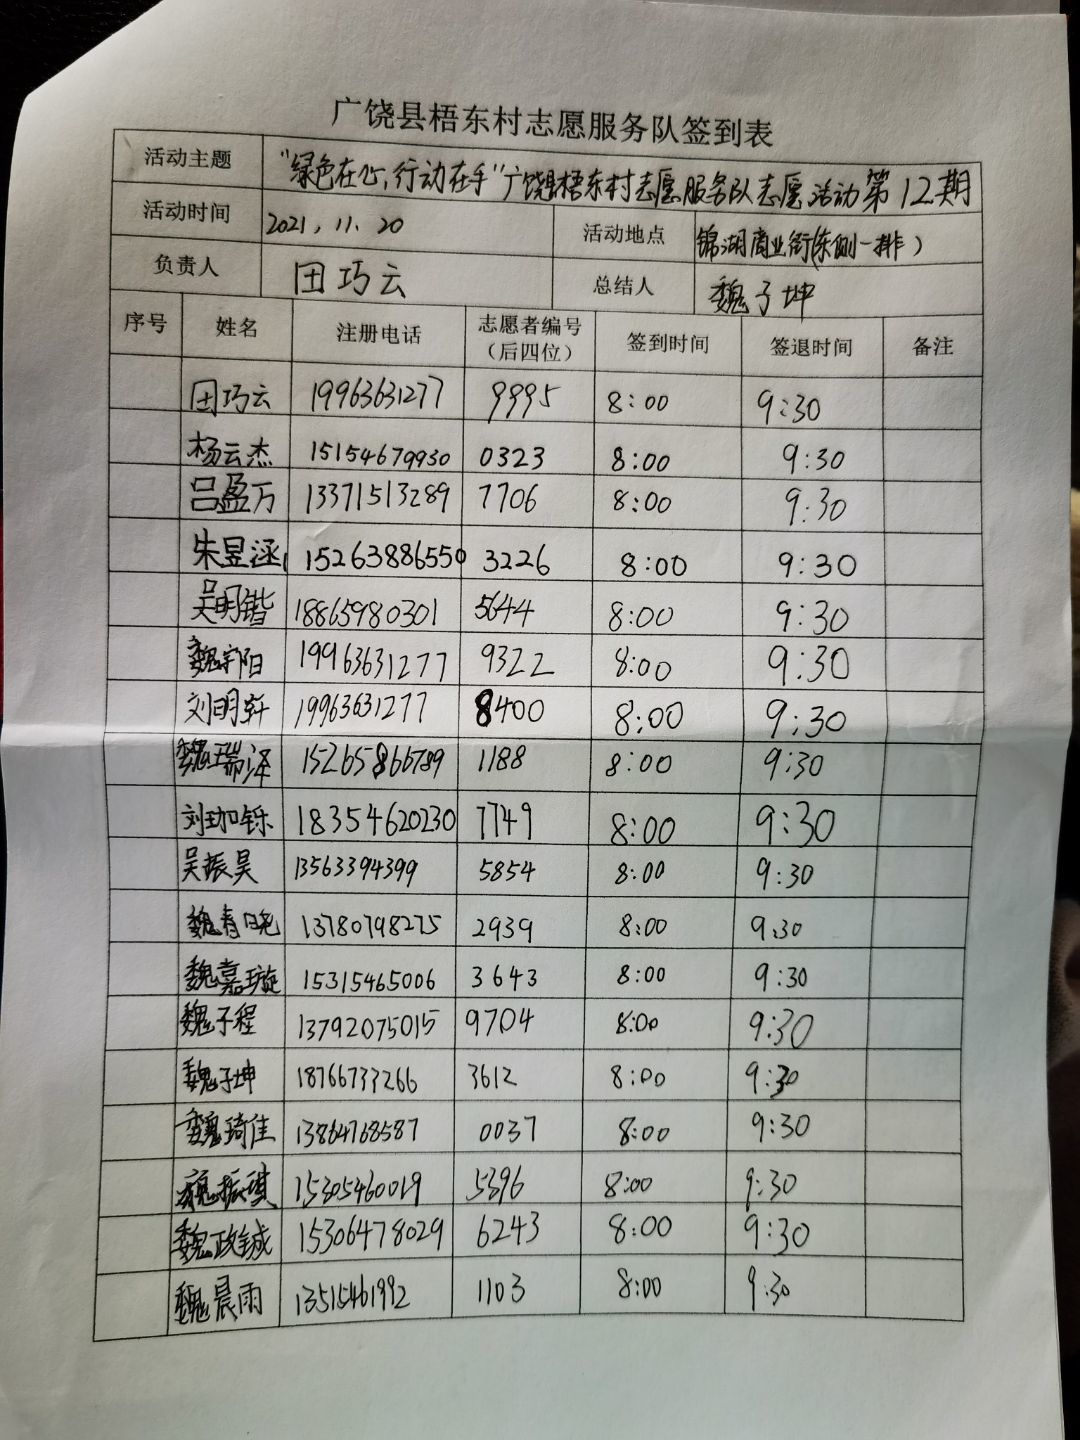 广饶县梧东村志愿服务队签到表
活动主题 "绿色在心,行动在手"广饶县梧东村志愿服务队志愿活动第12期
活动时间 2021,11.20 活动地点 锦湖商业街(东侧一排)
负责人 田巧云 总结人 魏子坤
序号 姓名 注册电话 志愿者编号(后四位) 签到时间 签退时间 备注
田巧云 19963631277 9995 8:00 9:30
杨云杰 15154679930 0323 8:00 9:30
吕盈万 13371513289 7706 8:00 9:30
朱昱涵 15263886550 3226 8:00 9:30
吴明锴 18865980301 5644 8:00 9:30
魏宇阳 19963631277 9322 8:00 9:30
刘明轩 19963631277 8400 8:00 9:30
魏瑞泽 15265866789 1188 8:00 9:30
刘珈铄 18354620230 7749 8:00 9:30
吴振昊 13563394399 5854 8:00 9:30
魏春晓 13780798275 2939 8:00 9:30
魏嘉璇 15315465006 3643 8:00 9:30
魏子程 13792075015 9704 8:00 9:30
魏子坤 18766733266 3612 8:00 9:30
魏琦佳 13864768587 0037 8:00 9:30
魏振琪 15305460019 5396 8:00 9:30
魏政铖 15306478029 6243 8:00 9:30
魏晨雨 13515461992 1103 8:00 9:30